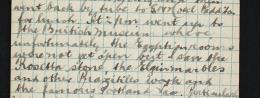 went back by tube to
for lunch. At 2 p.m. went up to
the British Museum where
unfortunately the Egyptian rooms
were not yet open but I saw the
Rosetta stone the Elgin marbles
and other Praxiteles work and
the famous Portland Vase.